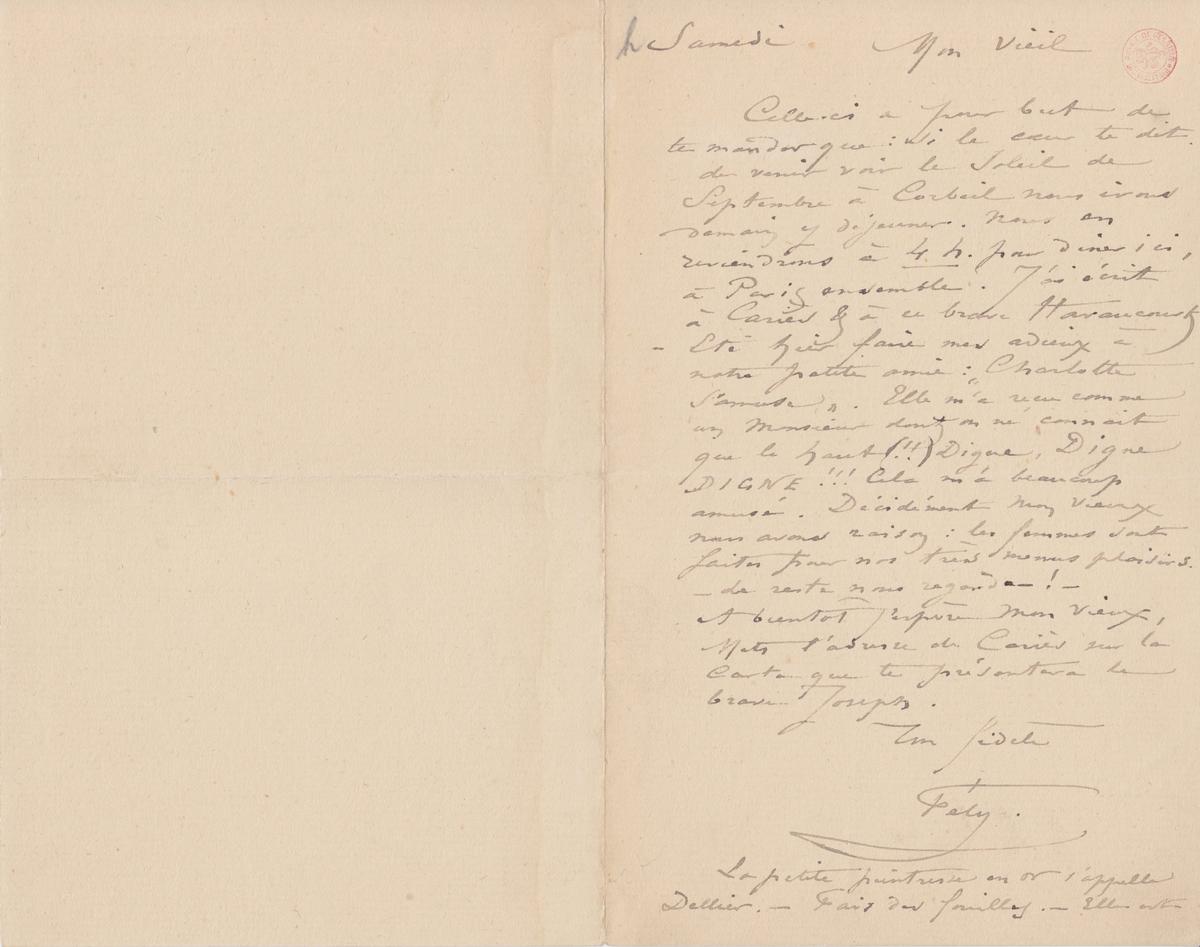 Samedi Mon Vieil
Celle-ci a pour but de
te mander que : si le cœur te dit
de venir voir le Soleil de
Septembre à Corbeil nous irons
demain y déjeuner. Nous en
reviendrons à 4 h. pour diner ici,
à Paris ensemble. J'ai écrit
à Cariès & à ce brave Haraucourt
- Eté hier faire mes adieux à
notre petite amie : "Charlotte
s'amuse". Elle m'a reçu comme
un Monsieur dont on ne connait
que le haut (!!) Digne, Digne
DIGNE !!! Cela m'a beaucoup
amusé. Décidément mon vieux
nous avons raison : les femmes sont
faites pour nos très menus plaisirs.
- le reste nous regarde - ! -
A bientôt j'espère mon vieux,
Mets l'adresse de Cariès sur la
Carte que te présentera le
brave Joseph.
Ton fidèle
Fély.
La petite peintresse en or s'appelle
Dellier. - Fais des fouilles. - Elle est